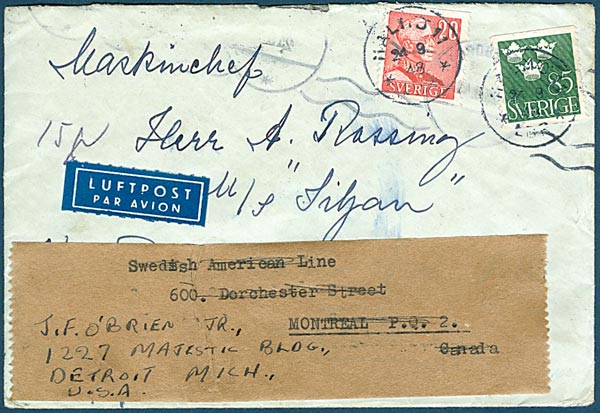 MALMÖ 17
20
SVERIGE
85
SVERIGE
Maskinchef
Herr A. Rossing
M/S "Siljan"
LUFTPOST
PAR AVION
Swedish American Line
600. Dorchester Street
MONTREAL P.Q. 2.
Canada
J.F. O'BRIEN JR.,
1227 MAJESTIC BLDG.,
DETROIT MICH.,
U.S.A.